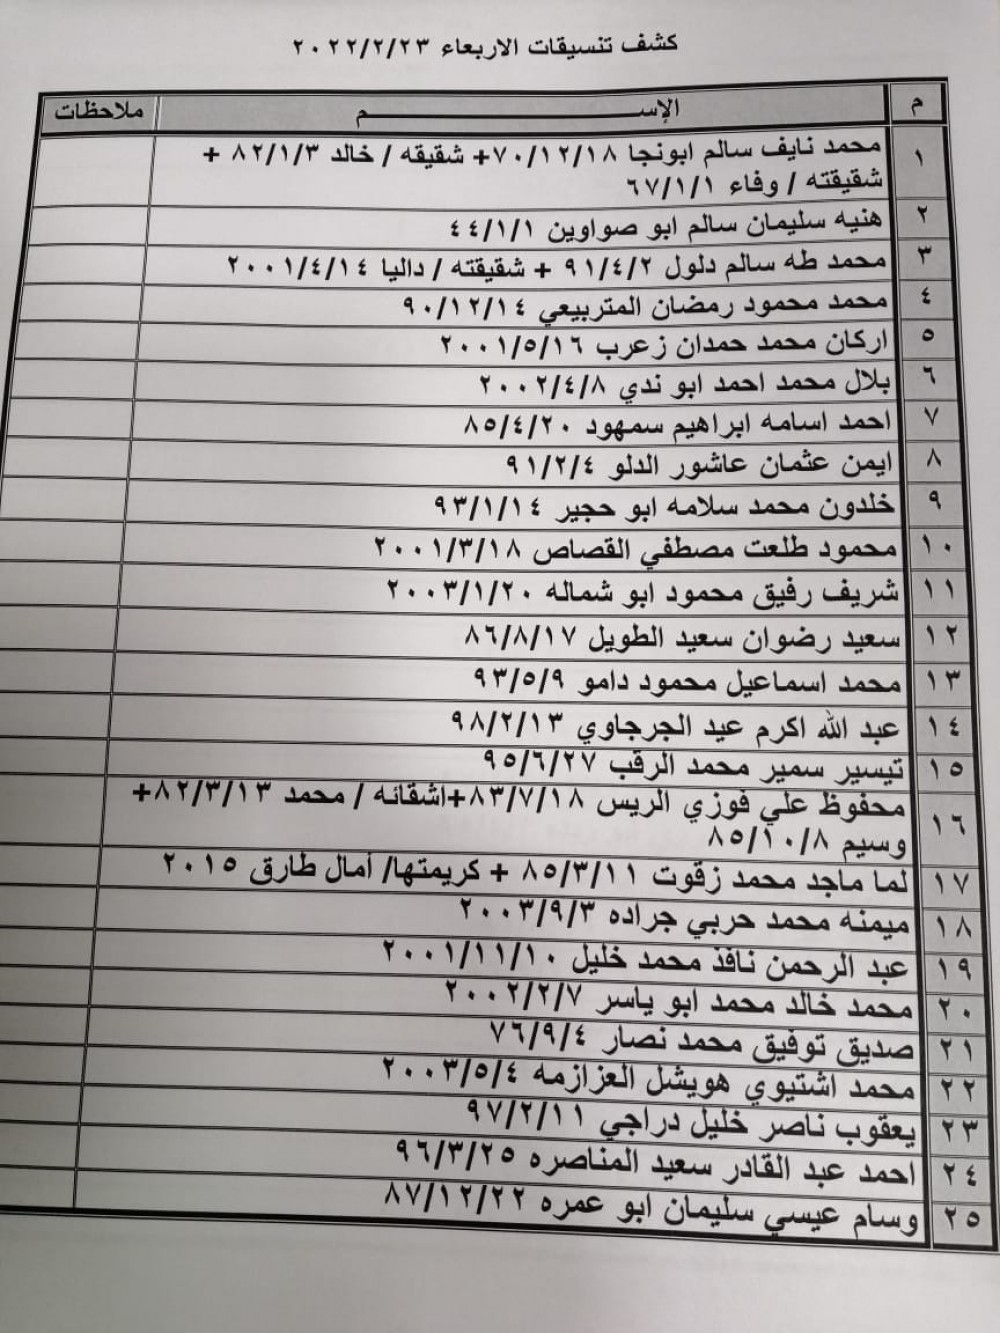 كشف تنسيقات الاربعاء ٢٠٢٢/٢/٢٣
م الإســـــــــم ملاحظات
١ محمد نايف سالم ابونجا ٧٠/١٢/١٨+ شقيقه / خالد ٨٢/١/٣ +
شقيقته / وفاء ٦٧/١/١
٢ هنيه سليمان سالم ابو صواوين ٤٤/١/١
٣ محمد طه سالم دلول ٩١/٤/٢ + شقيقته / داليا ٢٠٠١/٤/١٤
٤ محمد محمود رمضان المتربيعي ٩٠/١٢/١٤
٥ اركان محمد حمدان زعرب ٢٠٠١/٥/١٦
٦ بلال محمد احمد ابو ندي ٢٠٠٢/٤/٨
٧ احمد اسامه ابراهيم سمهود ٨٥/٤/٢٠
٨ ايمن عثمان عاشور الدلو ٩١/٢/٤
٩ خلدون محمد سلامه ابو حجير ٩٣/١/١٤
١٠ محمود طلعت مصطفي القصاص ٢٠٠١/٣/١٨
١١ شريف رفيق محمود ابو شماله ٢٠٠٣/١/٢٠
١٢ سعيد رضوان سعيد الطويل ٨٦/٨/١٧
١٣ محمد اسماعيل محمود دامو ٩٣/٥/٩
١٤ عبد الله اكرم عيد الجرجاوي ٩٨/٢/١٣
١٥ تيسير سمير محمد الرقب ٩٥/٦/٢٧
١٦ محفوظ علي فوزي الريس ٨٣/٧/١٨+اشقائه / محمد ٨٢/٣/١٣+
وسيم ٨٥/١٠/٨
١٧ لما ماجد محمد زقوت ٨٥/٣/١١ + كريمتها/ أمال طارق ٢٠١٥
١٨ ميمنه محمد حربي جراده ٢٠٠٣/٩/٣
١٩ عبد الرحمن نافذ محمد خليل ٢٠٠١/١١/١٠
٢٠ محمد خالد محمد ابو ياسر ٢٠٠٢/٢/٧
٢١ صديق توفيق محمد نصار ٧٦/٩/٤
٢٢ محمد اشتيوي هويشل العزازمه ٢٠٠٣/٥/٤
٢٣ يعقوب ناصر خليل دراجي ٩٧/٢/١١
٢٤ احمد عبد القادر سعيد المناصره ٩٦/٣/٢٥
٢٥ وسام عيسي سليمان ابو عمره ٨٧/١٢/٢٢